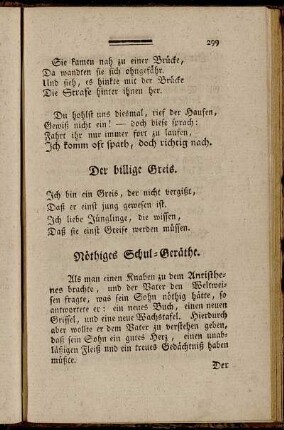 299
Sie kamen nah zu einer Brücke,
Da wandten sie sich ohngefähr.
Und sieh, es hinkte mit der Brücke
Die Strafe hinter ihnen her.
Du hohlst uns diesmal, rief der Haufen,
Gewiß nicht ein! — doch diese sprach:
Fahrt ihr nur immer fort zu laufen,
Ich komm oft spath, doch richtig nach.
Der billige Greis.
Ich bin ein Greis, der nicht vergißt,
Daß er einst jung gewesen ist.
Ich liebe Jünglinge, die wissen,
Daß sie einst Greise werden müssen.
Nöthiges Schul-Geräthe.
Als man einen Knaben zu dem Antisthe-
nes brachte, und der Vater den Weltwei-
sen fragte, was sein Sohn nöthig hätte, so
antwortete er: ein neues Buch, einen neuen
Griffel, und eine neue Wachstafel. Hierdurch
aber wollte er dem Vater zu verstehen geben,
daß sein Sohn ein gutes Herz, einen unab-
läßigen Fleiß und ein treues Gedächtniß haben
müßte.
Der